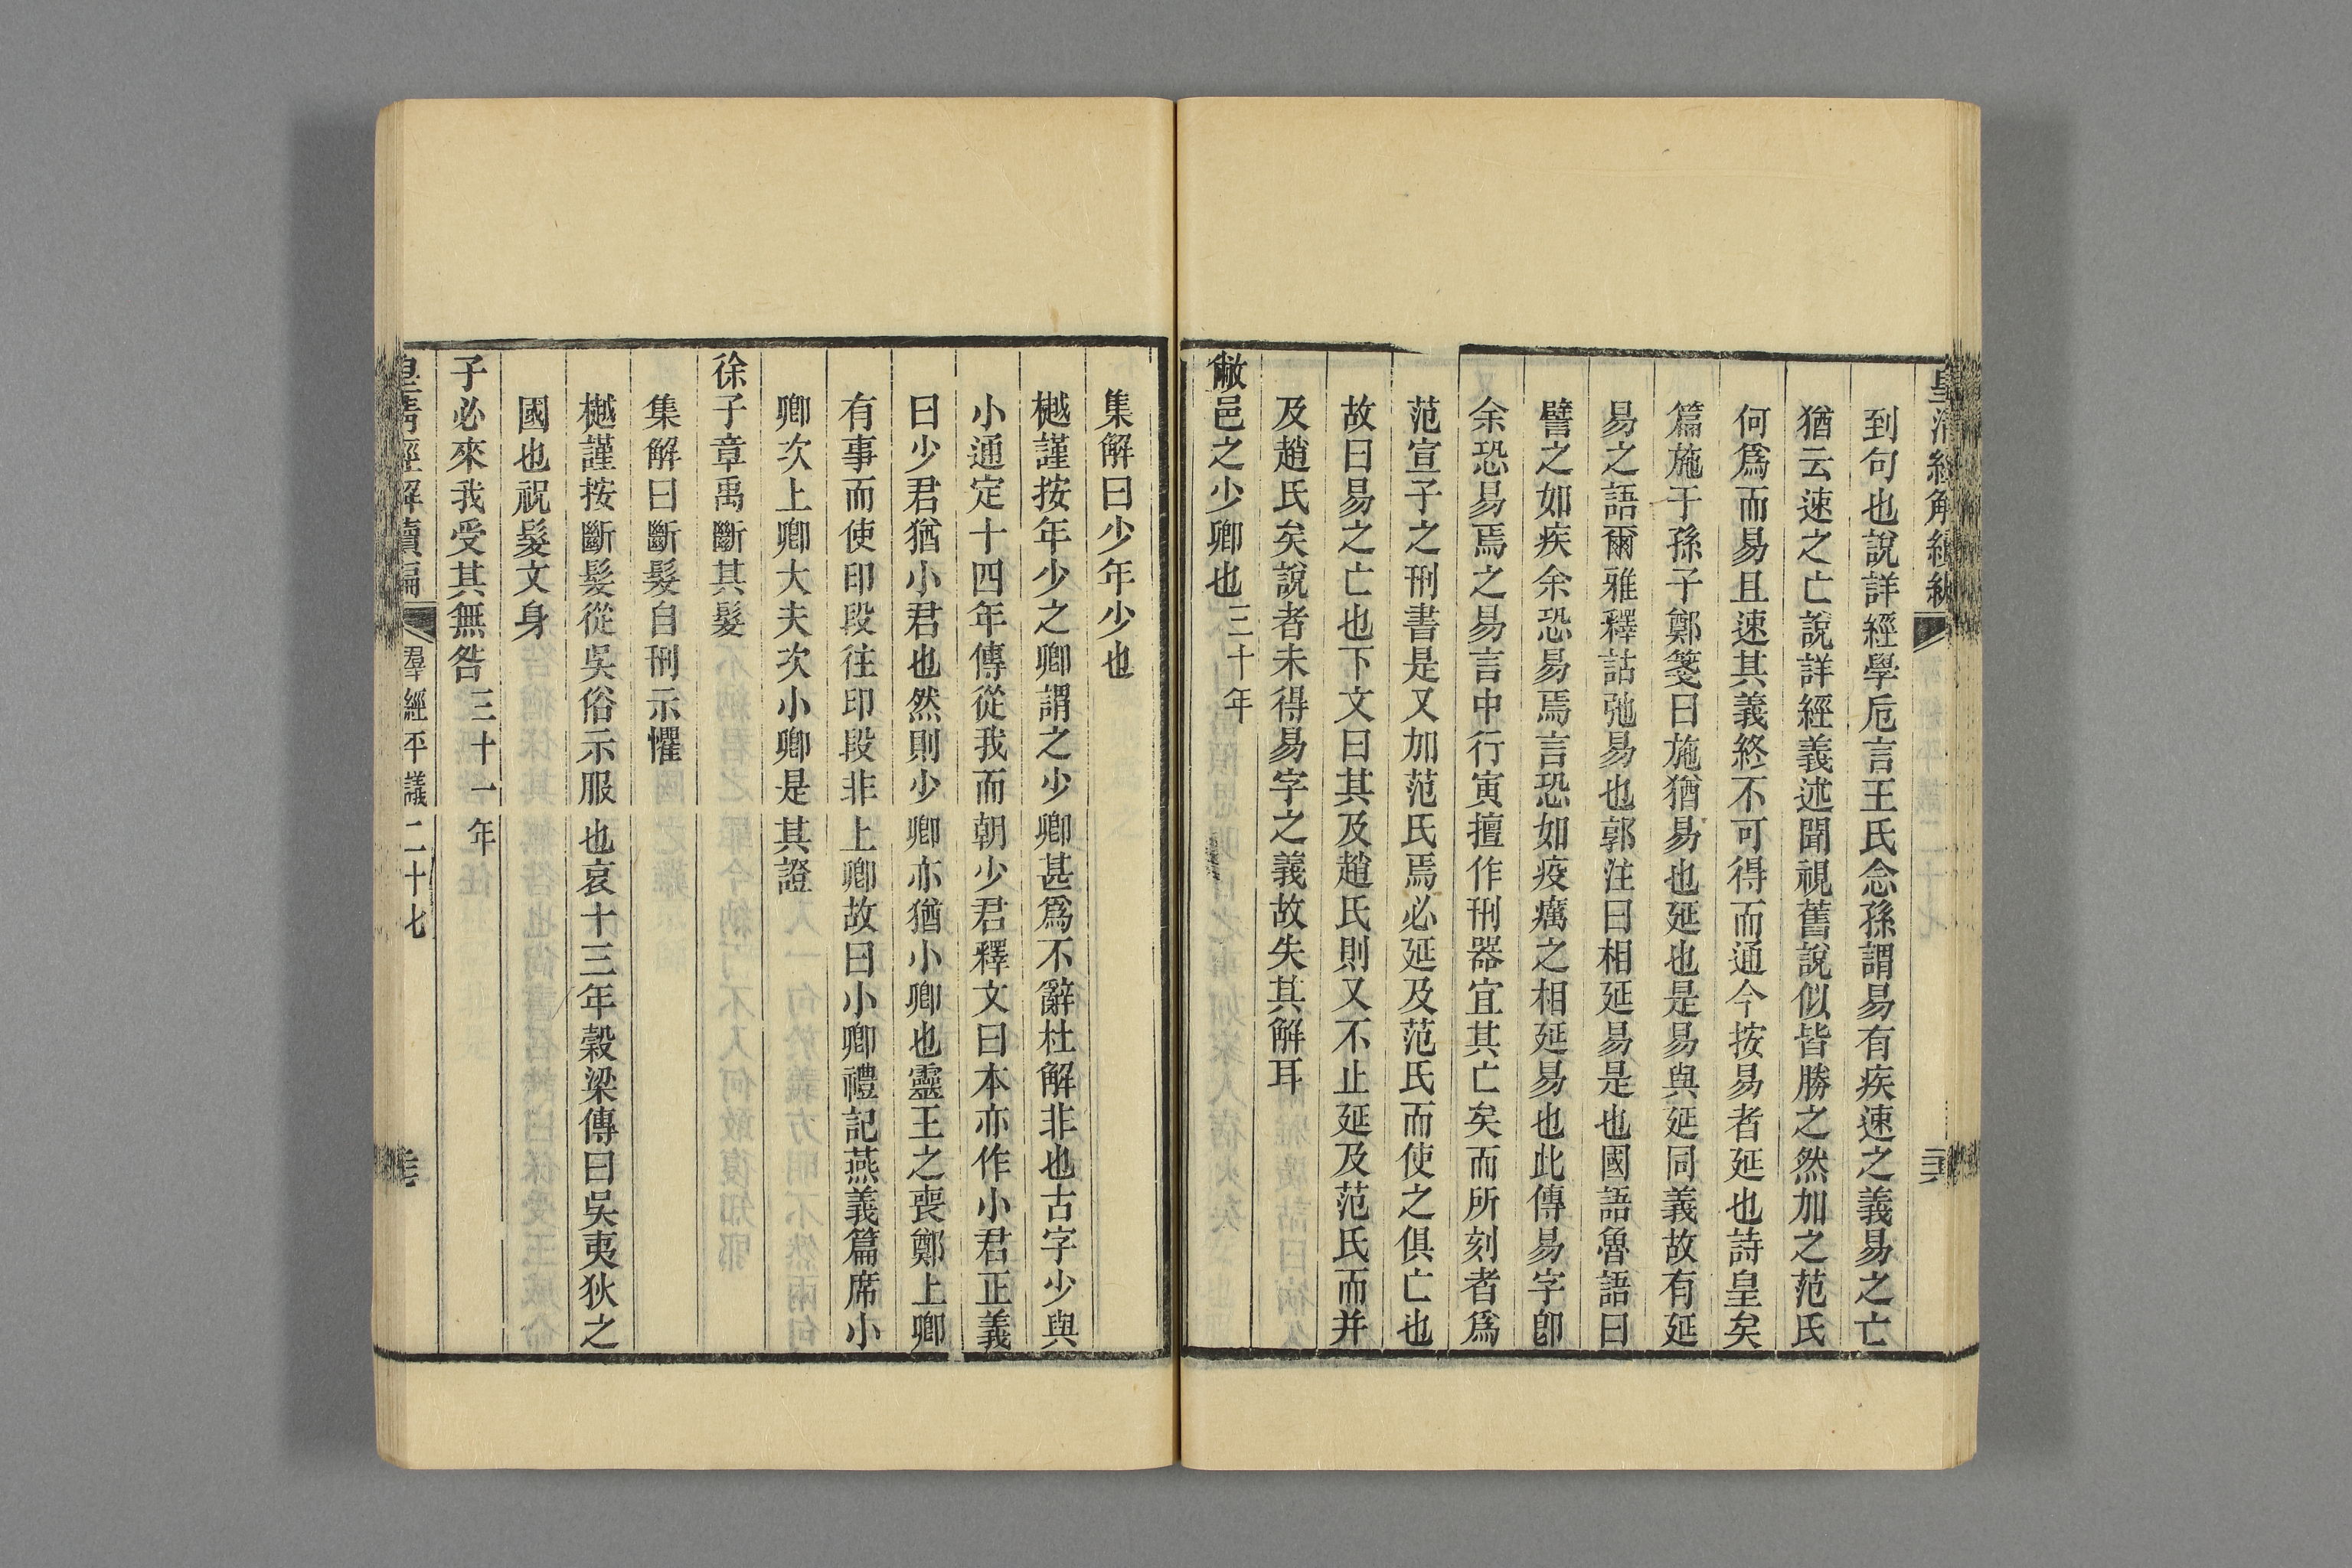 到句也說詳經學卮言王氏念孫謂易有疾速之義易之亡
猶云速之亡說詳經義述聞視舊說似皆勝之然加之范氏
何爲而易且速其義終不可得而通今按易者延也詩皇矣
篇施于孫子鄭箋曰施猶易也延也是易與延同義故有延
易之語爾雅釋詁弛易也郭注曰相延易是也國語魯語曰
譬之如疾余恐易焉言恐如疫癘之相延易也此傳易字卽
余恐易焉之易言中行寅擅作刑器宜其亡矣而所刻者爲
范宣子之刑書是又加范氏焉必延及范氏而使之俱亡也
故曰易之亡也下文曰其及趙氏則又不止延及范氏而并
及趙氏矣說者未得易字之義故失其解耳
敝邑之少卿也三十年
集解曰少年少也
樾謹按年少之卿謂之少卿甚爲不辭杜解非也古字少與
小通定十四年傳從我而朝少君釋文曰本亦作小君正義
曰少君猶小君也然則少卿亦猶小卿也靈王之喪鄭上卿
有事而使印段往印段非上卿故曰小卿禮記燕義篇席小
卿次上卿大夫次小卿是其證
徐子章禹斷其髮
集解曰斷髮自刑示懼
樾謹按斷髮從吳俗示服也哀十三年穀梁傳曰吳夷狄之
國也祝髮文身
子必來我受其無咎三十一年
皇清經解續編 羣經平議二十七